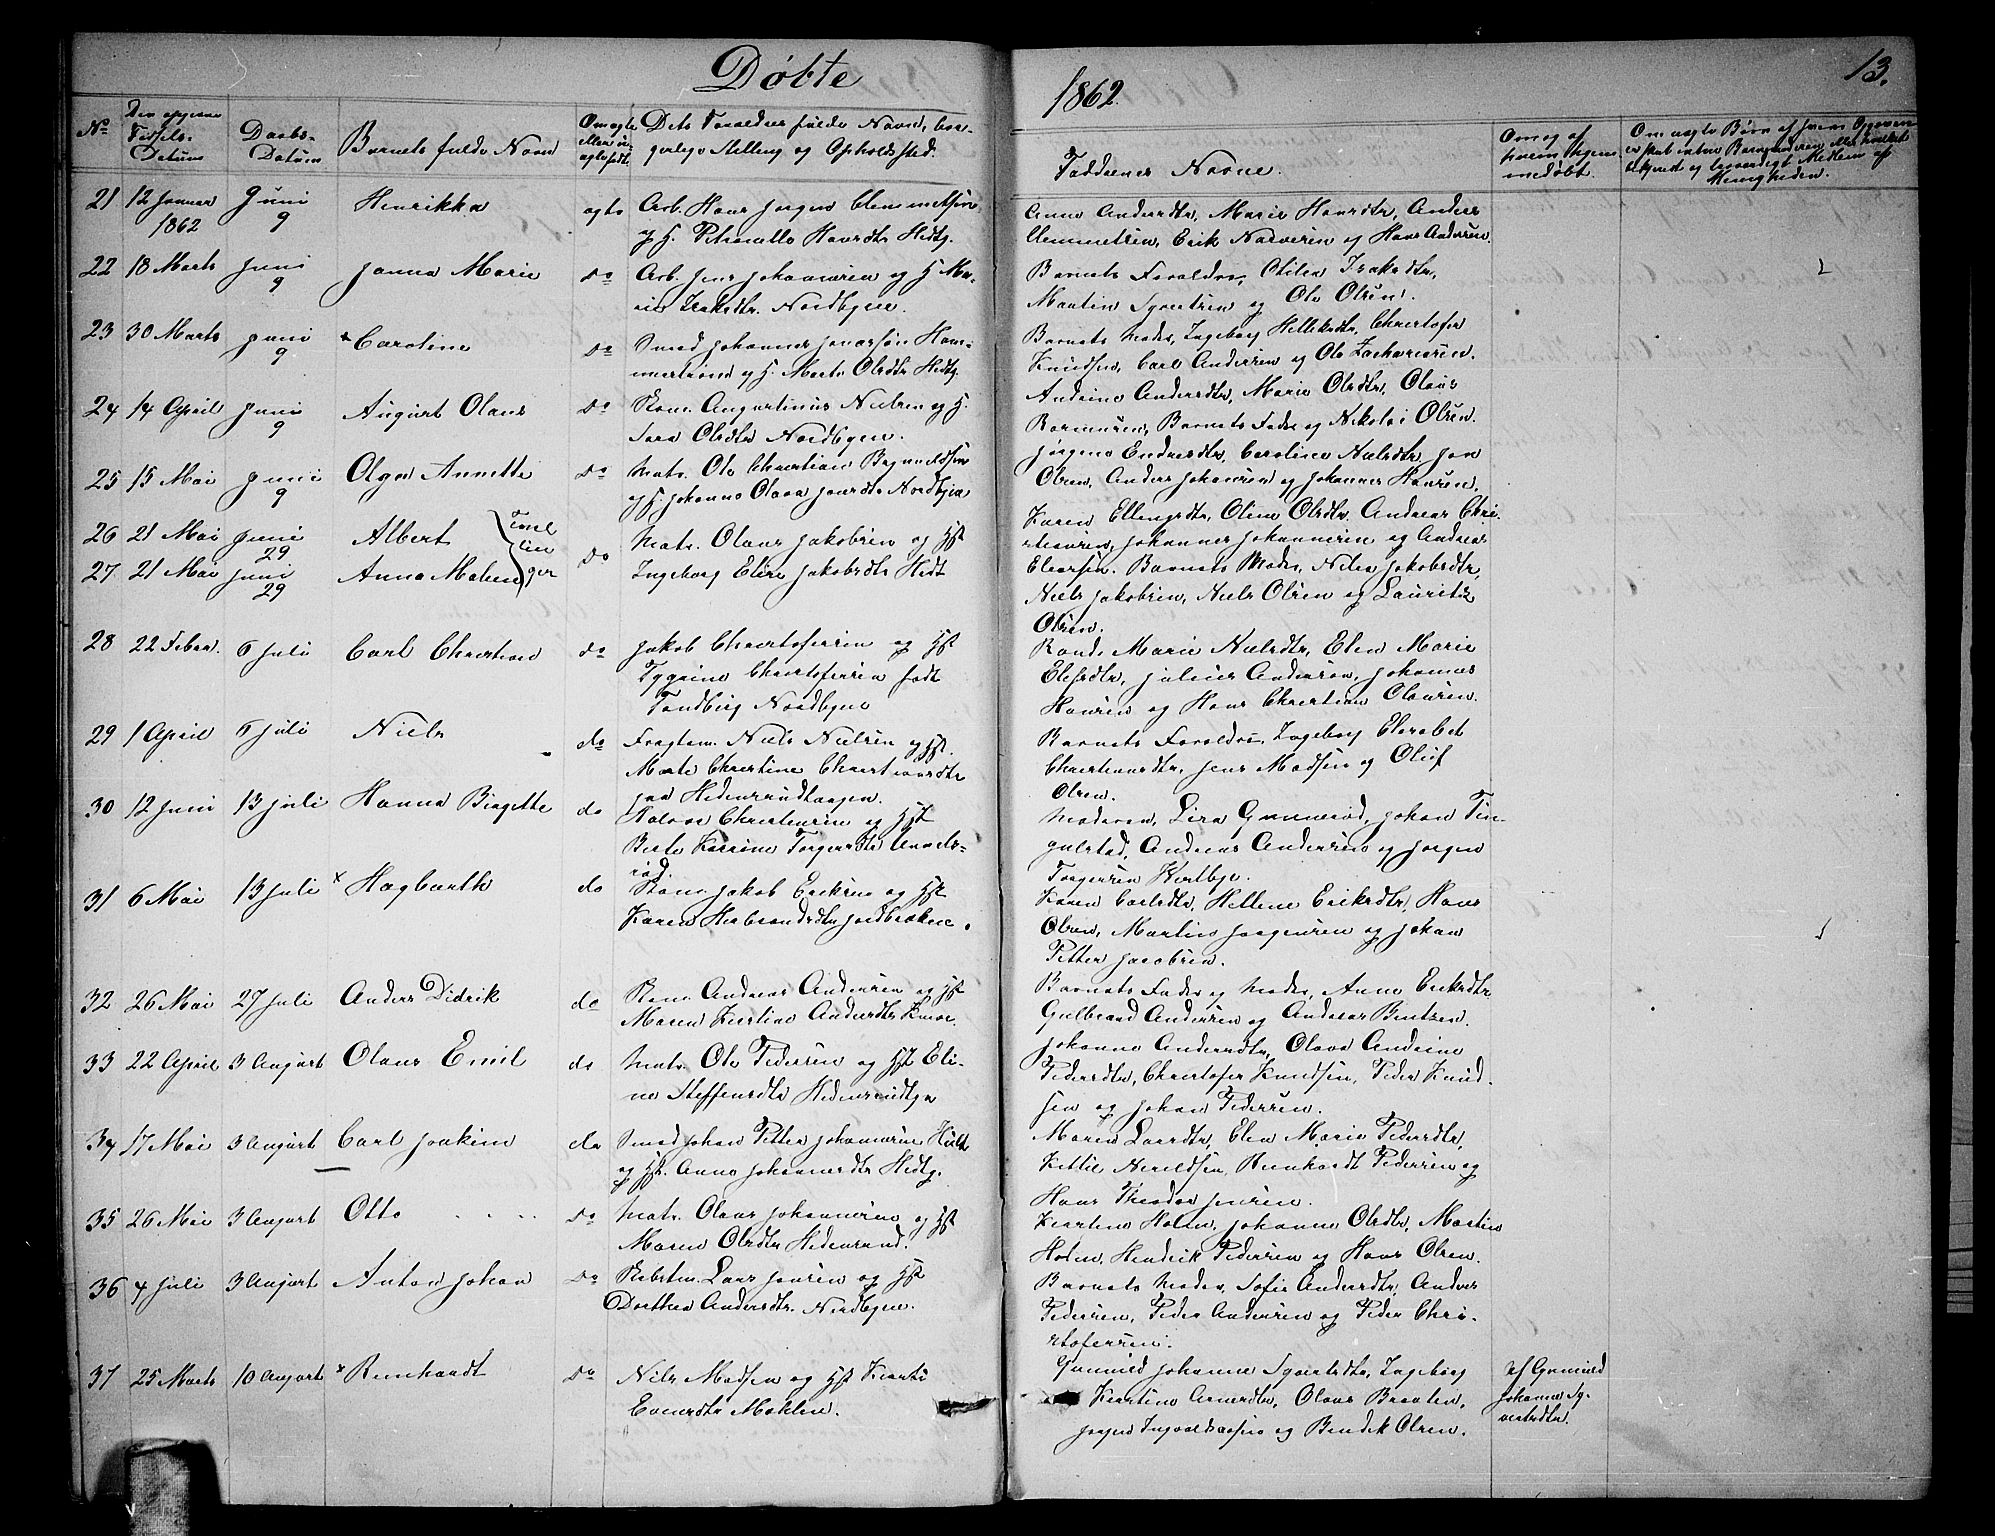 Døbte
1862.
13.
No
Fødsels-
Datum
Daabs-
Datum
Barnets fulde Navn
Om ægte
eller u-
ægtefødt.
Dets Forældres fulde Navne, bor-
gerlige Stilling og Opholdssted.
Faddernes Navne.
Om og af
hvem hjem-
medøbt.
Menigheden.
21 12 Januar 1862 Juni 9 Henrikka ægte Arb. Hans Jørgen Clemmetsen
og H. Petronelle Hansdtr Hedtg.
Anne Andersdtr, Marie Hansdtr, Anders
Clemmetsen, Erik Narvesen og Hans Andersen.
22 18 Marts Juni 9 Janna Marie do Arb. Jens Johannesen og H. Ma-
rie Isaksdtr. Nordbyen.
Barnets Forældre, Otilia Isaksdtr,
Martin Syvertsen og Ole Olsen.
23 30 Marts Juni 9 Caroline do Smed Johannes Jonassøn Ham-
og H. Marte Olsdtr Hedtg.
Barnets Moder, Ingeborg Christofer
Knudsen, Carl Andersen og Ole Zachariasen.
24 14 April Juni 9 August Olaus do Augustinus Nielsen og H.
Sara Olsdtr Nordbyen.
Andrine Andersdtr, Marie Olsdtr, Olaus
Rasmusen, Barnets Fader og Nikolai Olsen.
25 15 Mai Juni 9 Olga Annette do Mats. Ole Christian
og H. Johanne Olava Jensdtr Nordbyen
Jørgine Endresdtr, Caroline Nielsdtr, Jon
Olsen, Anders Johansen og Johannes Hansen.
26 21 Mai Juni 29 Albert
27 21 Mai Juni 29 Anna Malene
Tvil
lin
ger
do Mats. Olaus Jakobsen og Hst
Ingeborg Elise Jakobsdtr Hedt
Karen Ellingsdtr, Oline Olsdtr. Andreas Chri-
stiansen, Johannes Johannesen og Andreas
Eliassen. Barnets Moder, Nilia Jakobsdtr,
Niels Jakobsen, Niels Olsen og Lauritz
Olsen.
28 22 Febar. 6 Juli Carl Christian do Jakob Christofersen og Hst
Christofersen født
Tandberg Nordbyen
Randi Marie Nielsdtr, Elen Marie
Julius Andersen, Johannes
Hansen og Hans Christian Olausen.
29 1 April 6 Juli Niels do Fragtem. Niels Nielsen og Hst.
Marte Christine Christiansdtr
paa Hedensrudtangen.
Barnets Forældre, Ingeborg Elisabet
Christiansdtr, Jens Madsen og Oluf
Olsen.
30 12 Juni 13 Juli Hanna Birgitte do Christensen og Hst
Berte Karine Torgersdtr
Moderen, Lisa Johan Tin-
gulstad, Andreas Andersen og Jørgen
Torgersen
31 6 Mai 13 Juli Hagbarth do Jakob Eriksen og Hst
Karen Herbrandsdtr Jordbrækken.
Karen Carlsdtr, Hellene Eriksdtr, Hans
Olsen, Martin Jørgensen og Johan
Petter Jacobsen.
32 26 Mai 27 Juli Anders Didrik do Andreas Andersen og Hst
Maren Kirstine Andersdtr
Barnets Fader og Moder, Anne Eriksdtr
Gulbrand Andersen og Andreas Bentzen.
33 22 April 3 August Olaus Emil do Mats. Ole Pedersen og Hst Eli-
ne Steffensdtr Hedensrudtgn
Johanne Andersdtr, Olava Andrine
Pedersdtr, Christofer Knudsen, Peder Knud-
sen og Johan Pedersen.
34 17 Mai 3 August Carl Joakim do Smed Johan Petter Johannesen
og Hst. Anne Johannesdtr Hedtg.
Maren Larsdtr, Elen Marie Pedersdtr,
Kittil Bernhardt Pedersen og
Hans Theodor Jensen.
35 26 Mai 3 August Otto do Mats. Olaus Johannesen og Hst
Maren Olsdtr Hedensrud.
Kirstine Holen, Johanne Olsdtr, Martin
Holen, Hendrik Pedersen og Hans Olsen.
36 4 Juli 3 August Anton Johan do Lars Jansen og Hst
Dorthea Andersdtr. Nordbyen.
Barnets Moder, Sofie Andersdtr, Anders
Pedersen, Peder Andersen og Peder Chri-
stofersen.
37 25 Marts 10 August Bernhardt do Nils Madsen og Hst Kirsti
Evensdtr Moklev.
Gunnild Johanne Syvertsdtr, Ingeborg
Kirstine Arnesdtr, Olaus Braaten,
og Bendik Olsen.
af Gunnild
Johanne Sy-
vertsdtr.